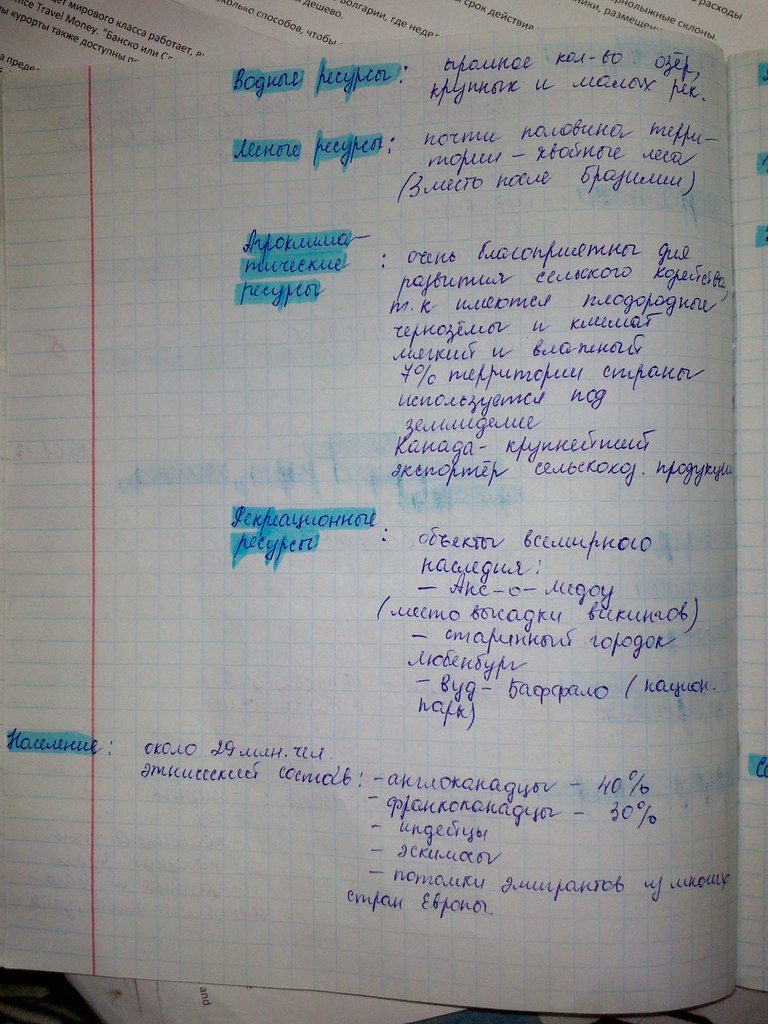 мирового класса работает,
nce Travel Money. "Банско или
курорты также доступны
сколько способов, чтобы
дешево.
Болгарии, где
срок действия
размещен
горнолыжные склоны.
расходы
Водные ресурсы: огромное кол-во озёр,
крупных и малых рек.
Лесные ресурсы: почти половина терри-
тории - хвойные леса
(3 место после Бразилии)
Агроклима-
тические
ресурсы
: очень благоприятны для
развития сельского хозяйства,
т.к имеются плодородные
чернозёмы и климат
мягкий и влажный
7% территории страны
используется под
землиделие
Канада - крупнейший
экспортёр сельскохоз. продукции
Рекреационные
ресурсы
: объекты всемирного
наследия:
- Анс-о-Медоу
(место высадки викингов)
- старинный городок
Люненбург
- Вуд-Баффало (национ.
парк)
Население: около 29 млн. чел.
этнический состав: - англоканадцы - 40%
- франкоканадцы - 30%
- индейцы
- эскимосы
- потомки эмигрантов из многих
стран Европы.
and